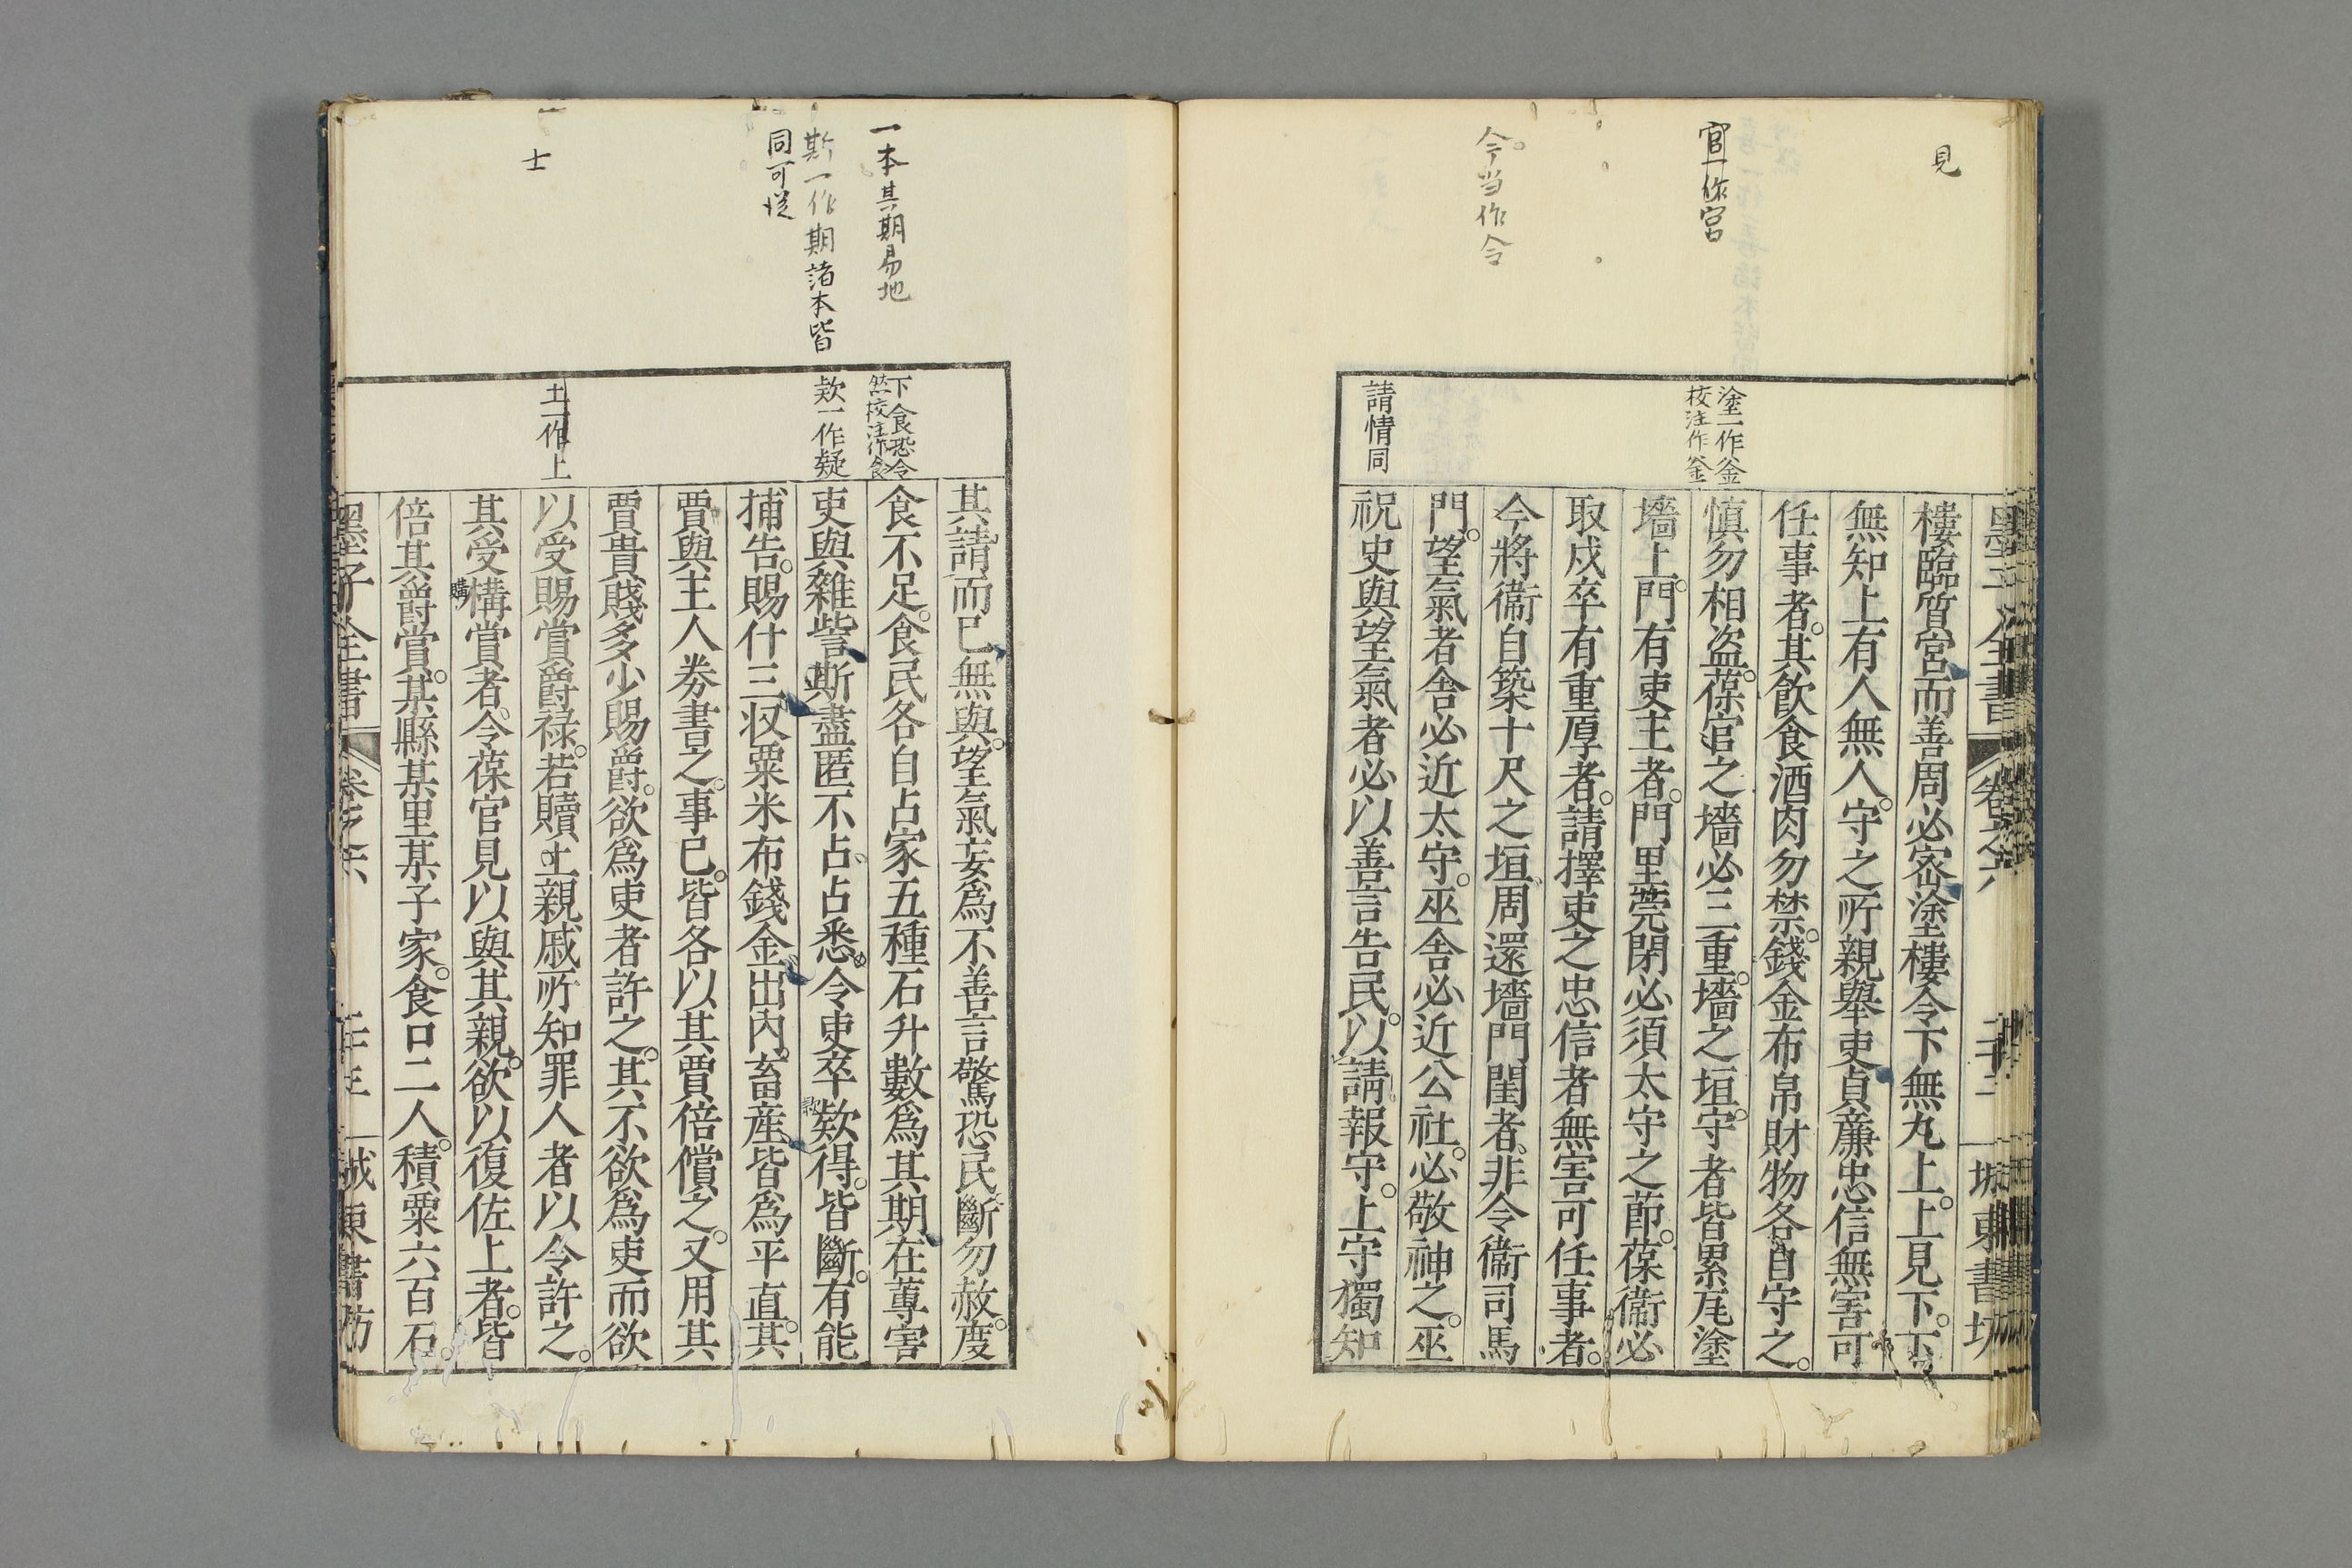 見
官一作宮
今当作令
塗一作釜
校注作釜
請情同
墨子全書 卷之六 二十二 城東書坊
樓臨質宮而善周必宻塗樓令下無丸上上見下下
無知上有人無人守之所親舉吏貞廉忠信無害可
任事者其飲食酒肉勿禁錢金布帛財物各自守之
慎勿相盗葆官之墻必三重墻之垣守者皆累㡯塗
墻上門有吏主者門里莞閉必須太守之莭葆衞必
取戍卒有重厚者請擇吏之忠信者無害可任事者
今將衞自築十尺之垣周還墻門閨者非令衞司馬
門望氣者舍必近太守巫舍必近公社必敬神之巫
祝史與望氣者必以善言告民以請報守上守獨知
一本其期易地
斯一作期諸本皆
同可從
士
下食恐令
然校注作食
欵一作疑
土一作上
其請而已無與望氣妄爲不善言驚恐民斷勿赦度
食不足食民各自占家五種石升數爲其期在蓴害
吏與雜訾斯盡匿不占占悉令吏卒欵得皆斷有能
捕告賜什三収粟米布錢金出内畜産皆爲平直其
賈與主人券書之事已皆各以其賈倍償之又用其
賈貴賤多少賜爵欲爲吏者許之其不欲爲吏而欲
以受賜賞爵禄若贖土親戚所知罪人者以令許之
其受構賞者令葆官見以與其親欲以復佐上者皆
購
倍其爵賞某縣某里某子家食口二人積粟六百石
墨子全書 卷之六 城東書坊